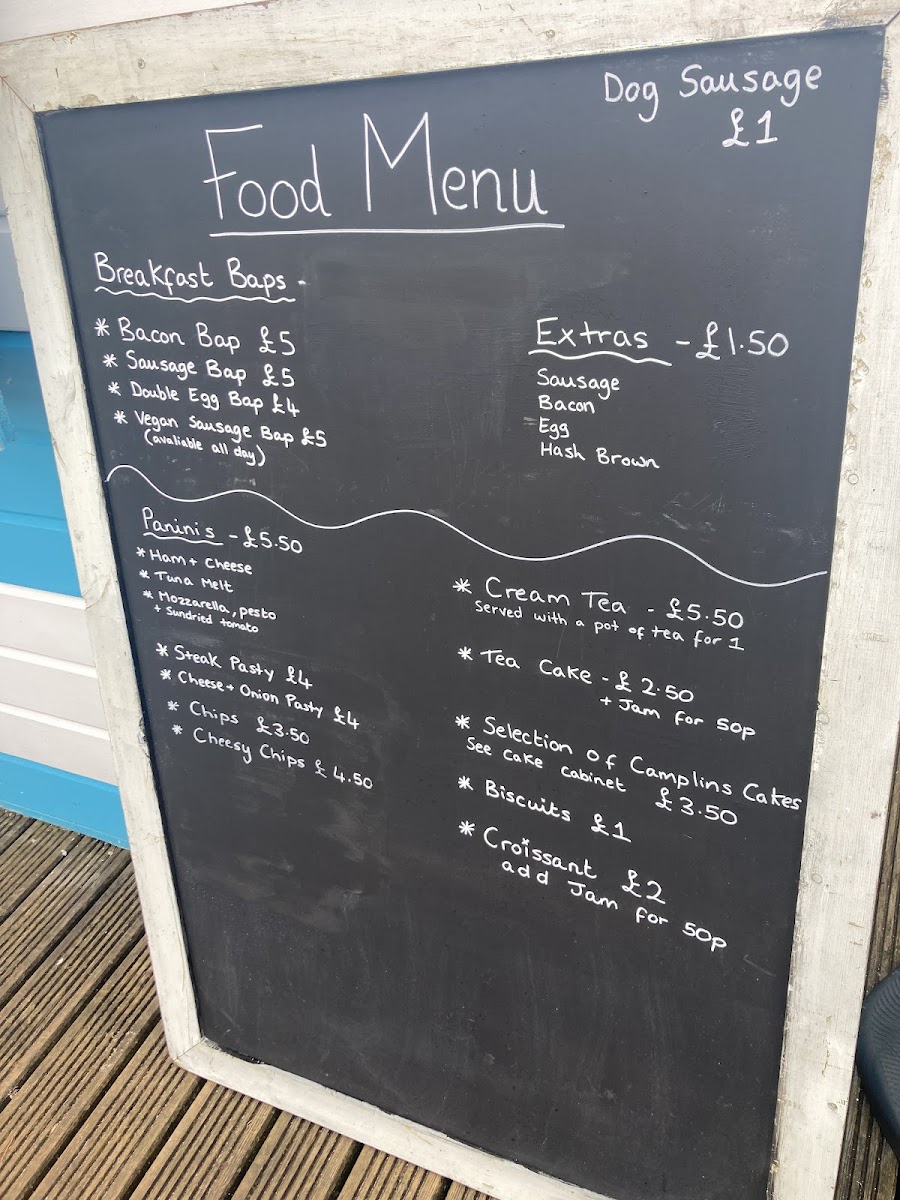 Dog Sausage
£1
Food Menu
Breakfast Baps -
* Bacon Bap £5
* Sausage Bap £5
* Double Egg Bap £4
* Vegan Sausage Bap £5
(avaliable all day)
Extras - £1.50
Sausage
Bacon
Egg
Hash Brown
Paninis - £5.50
* Ham + Cheese
* Tuna Melt
* Mozzarella, pesto
+ Sundried tomato
* Steak Pasty £4
* Cheese + Onion Pasty £4
* Chips £3.50
* Cheesy Chips £4.50
* Cream Tea - £5.50
Served with a pot of tea for 1
* Tea Cake - £2.50
+ Jam for 50p
* Selection of Camplins Cakes
See cake cabinet £3.50
* Biscuits £1
* Croissant £2
add Jam for 50p